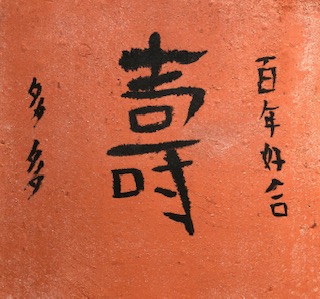 百年好合
壽
多多